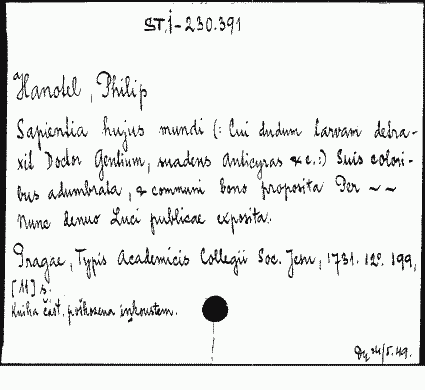 ST.I-230.391
Hanotel, Philip
Sapientia hujus mundi (: Cui dudum larvam detra-
xit Doctor Gentium, suadens Anticyras &c.:) Suis colori-
bus adumbrata, & communi bono proposita Per ~ ~
Nunc denuo Luci publicae exposita.
Pragae, Typis Academicis Collegii Soc. Jesu, 1731. 12º. 199,
[11] s.
Kniha část. poškozena inkoustem.
24/5.49.